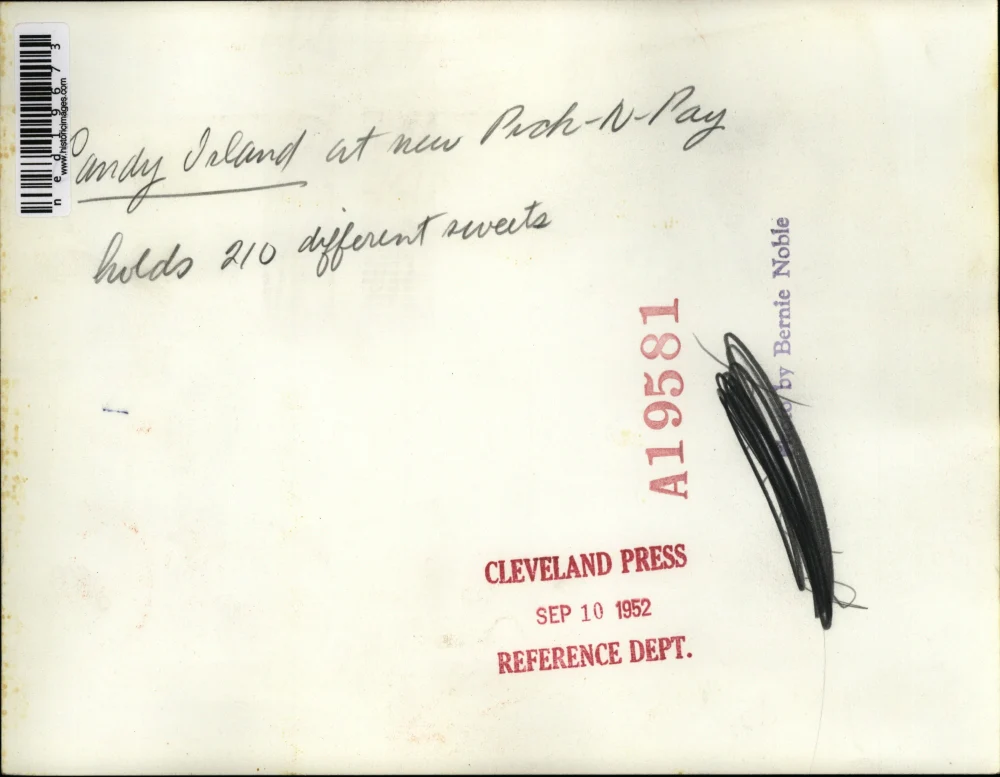 Candy Island at new Pick-N-Pay
holds 210 different sweets
ned19673
www.historicimages.com
A19581
by Bernie Noble
CLEVELAND PRESS
SEP 10 1952
REFERENCE DEPT.